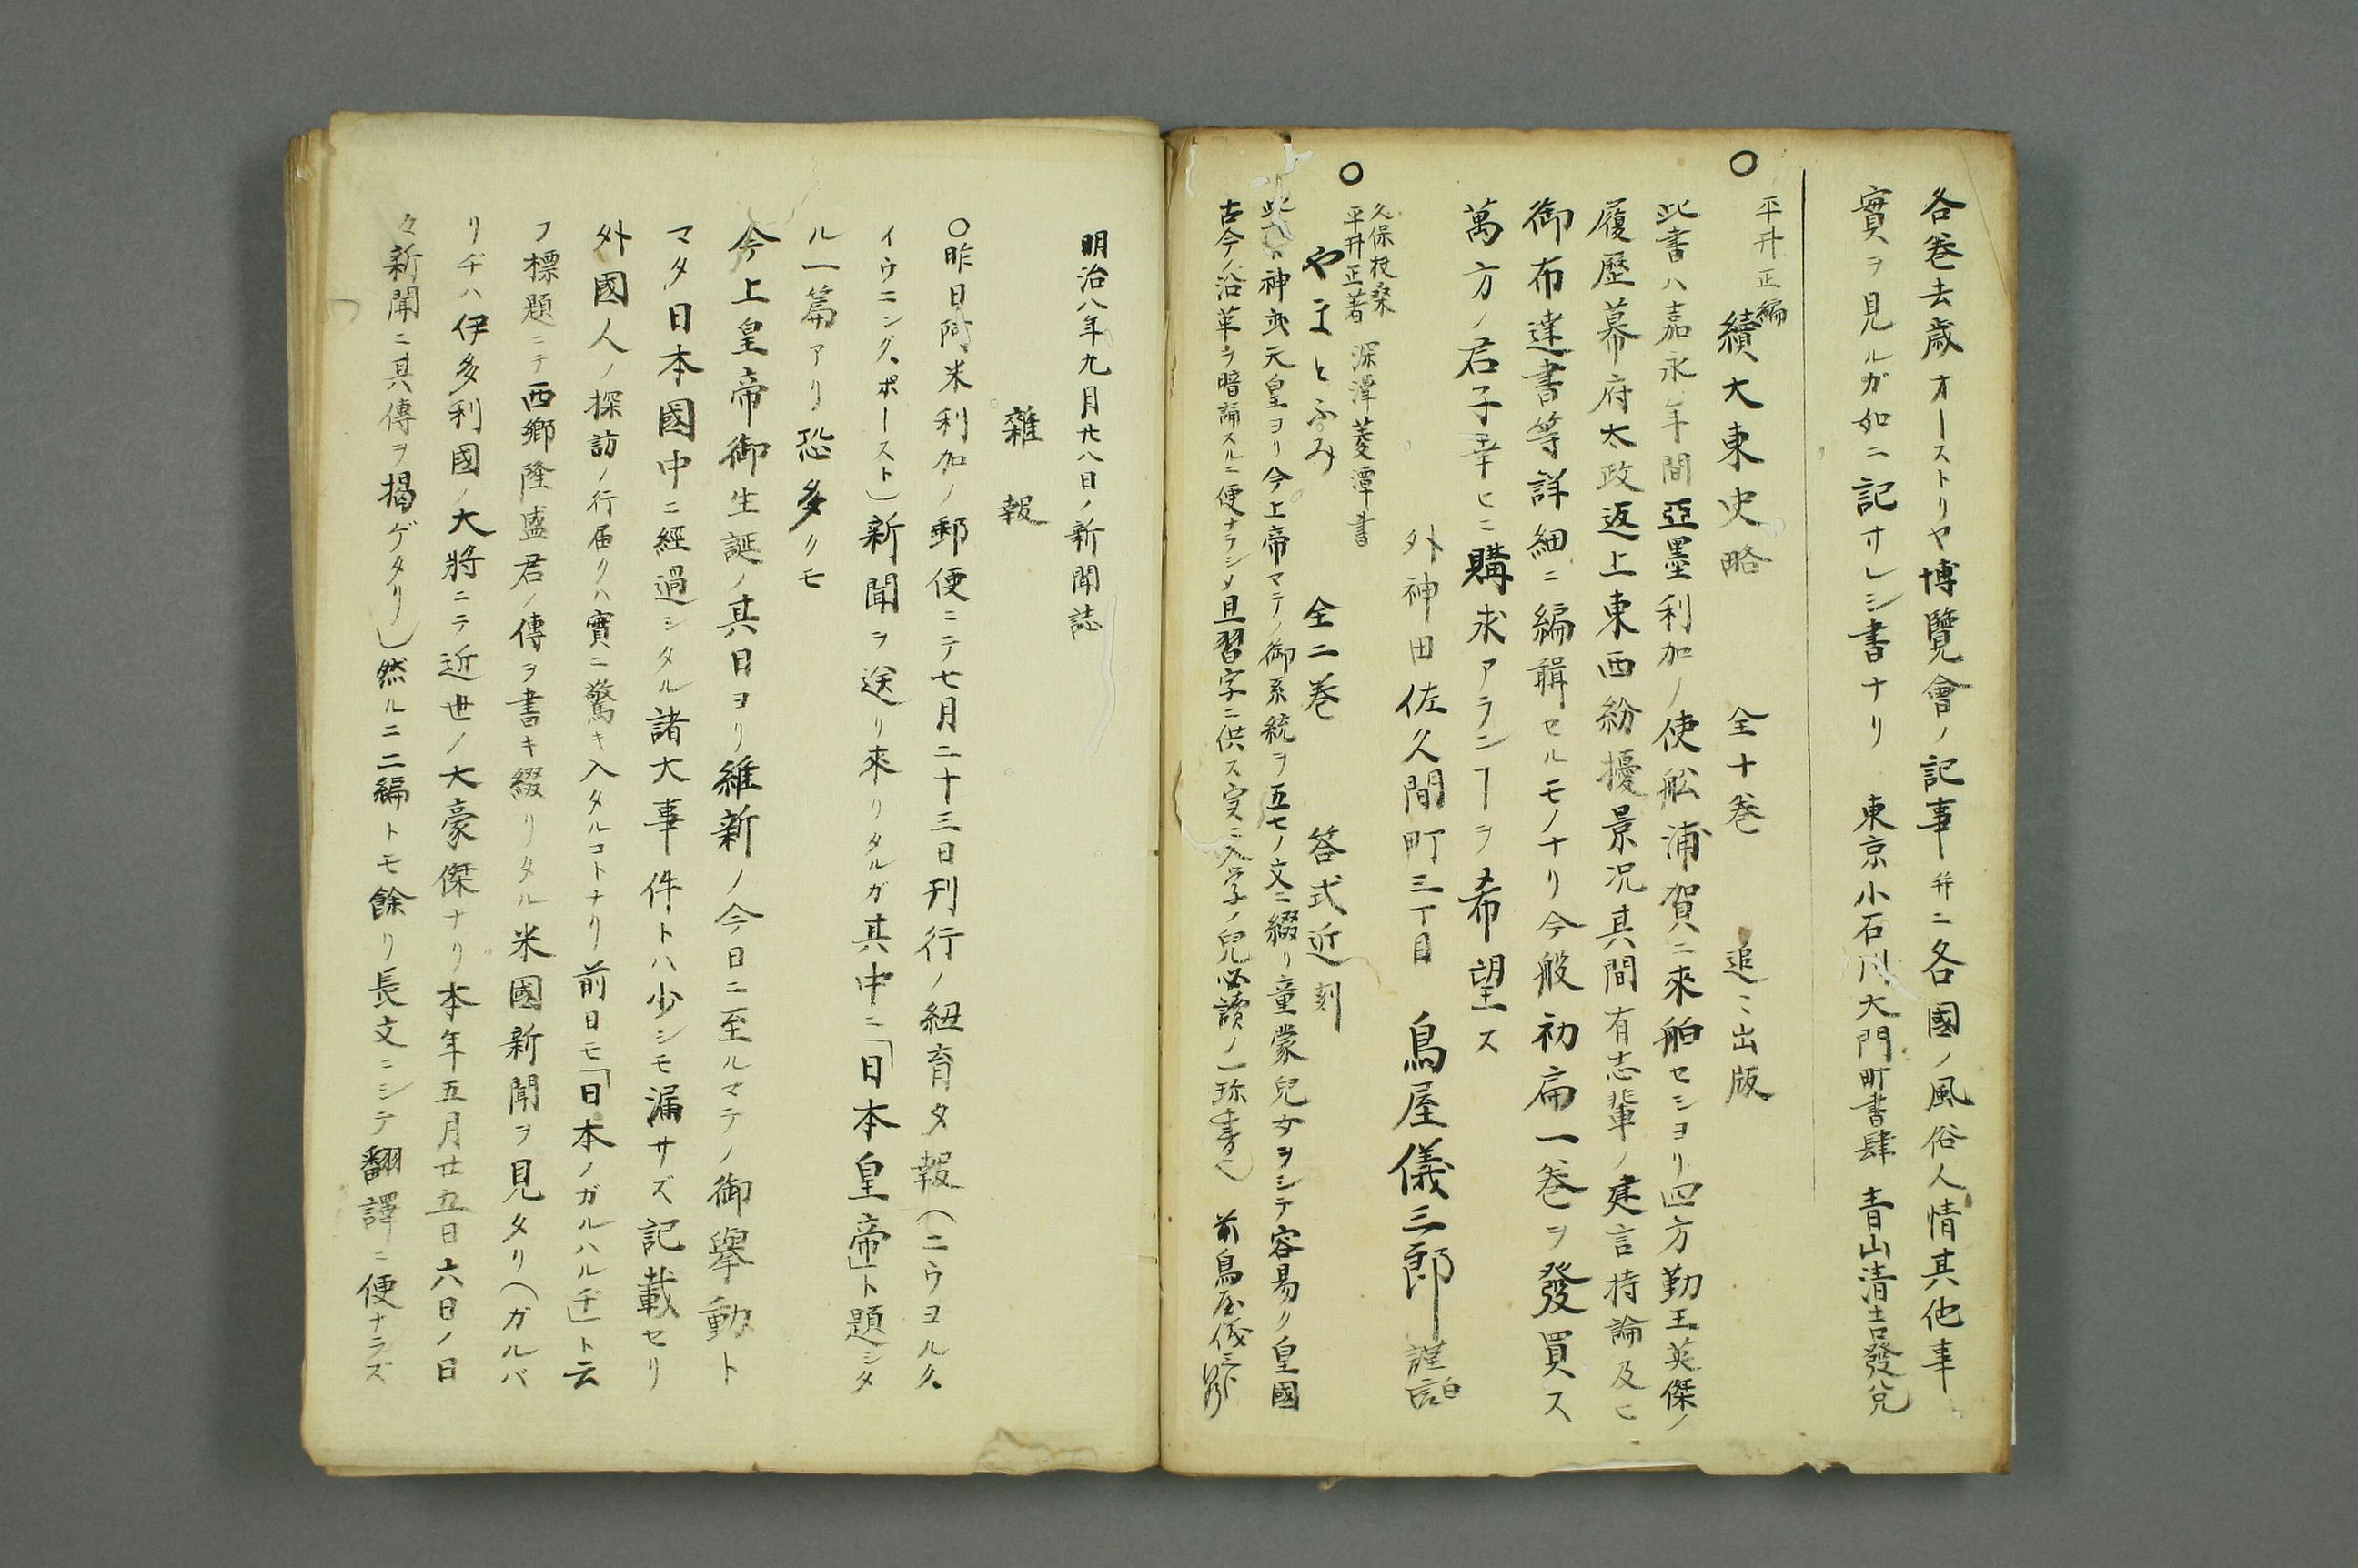 各卷去歳オーストリヤ博覽會ノ記事并ニ各國ノ風俗人情其他事
實ヲ見ルガ如ニ記オレシ書ナリ 東京小石川大門町書肆 青山清吉發兌
○ 平井正編
續大東史略 全十卷 追ミ出版
此書ハ嘉永年間亞墨利加ノ使舩浦賀ニ來舶セシヨリ四方勤王英傑ノ
履歷幕府太政返上東西紛擾景况其間有志輩ノ建言持論及ヒ
御布達書等詳細ニ編輯セルモノナリ今般初扁一卷ヲ發買ス
萬方ノ君子幸ヒニ購求アランヿヲ希望ス
外神田佐久間町三丁目 鳥屋儀三郎 謹白
○ 久保扶桑
平井正著 深澤菱潭書
やまとふみ 全二卷 答式近刻
神武天皇ヨリ今上帝マテノ御系統ヲ五七ノ文ニ綴リ童蒙兒女ヲシテ容易ク皇國
古今ノ沿革ヲ暗誦スルニ便ナラシメ且習字ニ供ス実ニ入学ノ兒必讀ノ一珍書也 前鳥屋儀三郎
明治八年九月廿八日ノ新聞誌
雜報
○昨日阿米利加ノ郵便ニテ七月二十三日刊行ノ紐育タ報(ニウヨルク、
イウニング、ポースト)新聞ヲ送リ來リタルガ其中ニ「日本皇帝」ト題シタ
ル一篇アリ恐多クモ
今上皇帝御生誕ノ其日ヨリ維新ノ今日ニ至ルマテノ御擧動ト
マタ日本國中ニ經過シタル諸大事件トハ少シモ漏サズ記載セリ
外國人ノ探訪ノ行届クハ實ニ驚キ入タルコトナリ前日モ「日本ノガルハルヂ」ト云
フ標題ニテ西鄉隆盛君ノ傳ヲ書キ綴リタル米國新聞ヲ見タリ(ガルバ
リヂハ伊多利國ノ大將ニテ近世ノ大豪傑ナリ本年五月廿五日六日ノ日
々新聞ニ其傳ヲ揭ゲタリ)然ルニ二編トモ餘リ長文ニシテ翻譯ニ便ナラズ